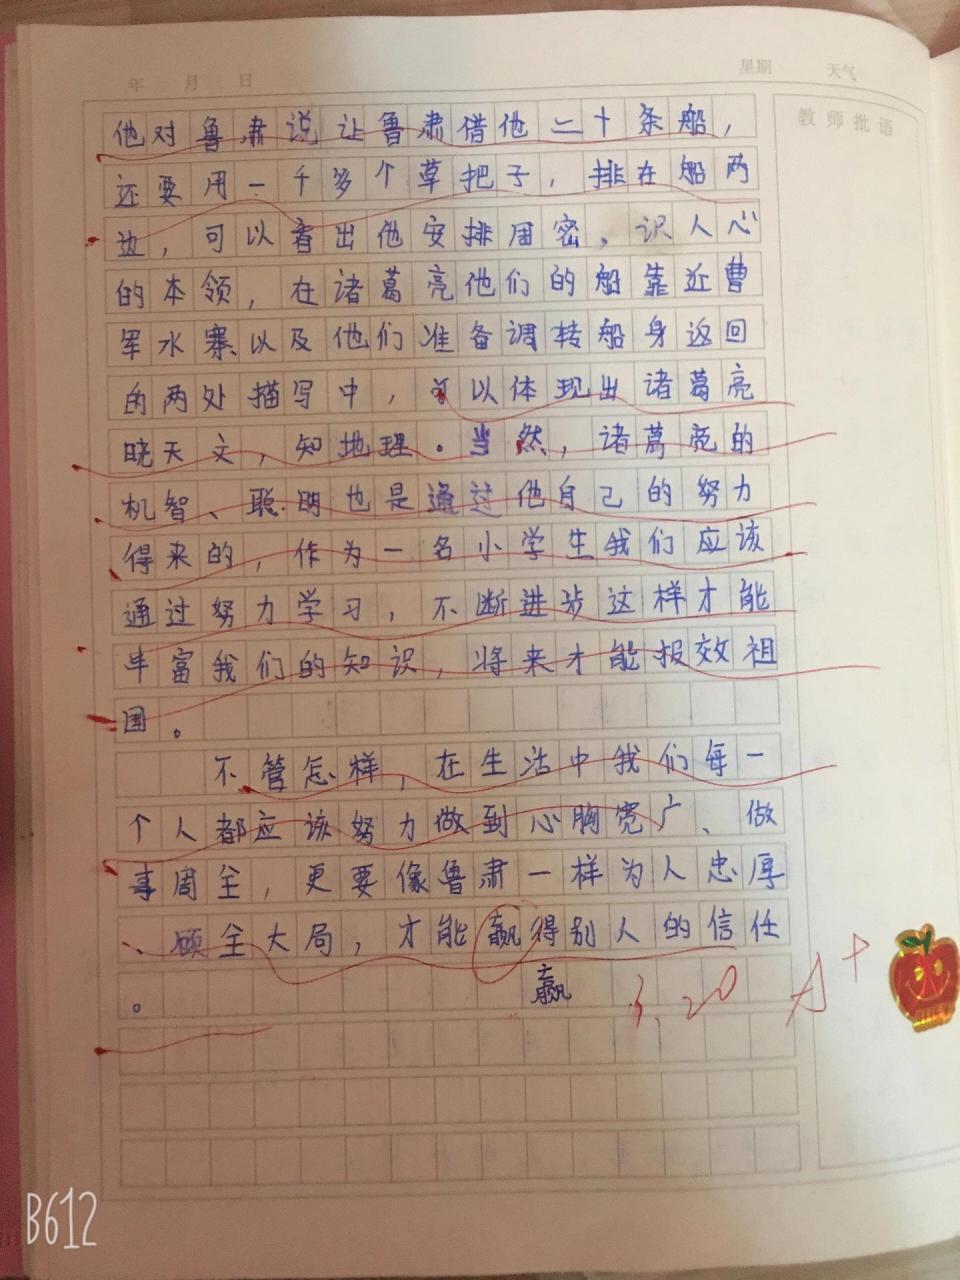 年 月 日 星期 天气
教师批语
他对鲁肃说让鲁肃借他二十条船，
还要用一千多个草把子，排在船两
边，可以看出他安排周密。识人心
的本领，在诸葛亮他们的船靠近曹
军水寨以及他们准备调转船身返回
的两处描写中，可以体现出诸葛亮
晓天文，知地理。当然，诸葛亮的
机智、聪明也是通过他自己的努力
得来的，作为一名小学生我们应该
通过努力学习，不断进步这样才能
丰富我们的知识，将来才能报效祖
国。
不管怎样，在生活中我们每一
个人都应该努力做到心胸宽广、做
事周全，更要像鲁肃一样为人忠厚
、顾全大局，才能赢得别人的信任
。
赢
5.20 A+
B612